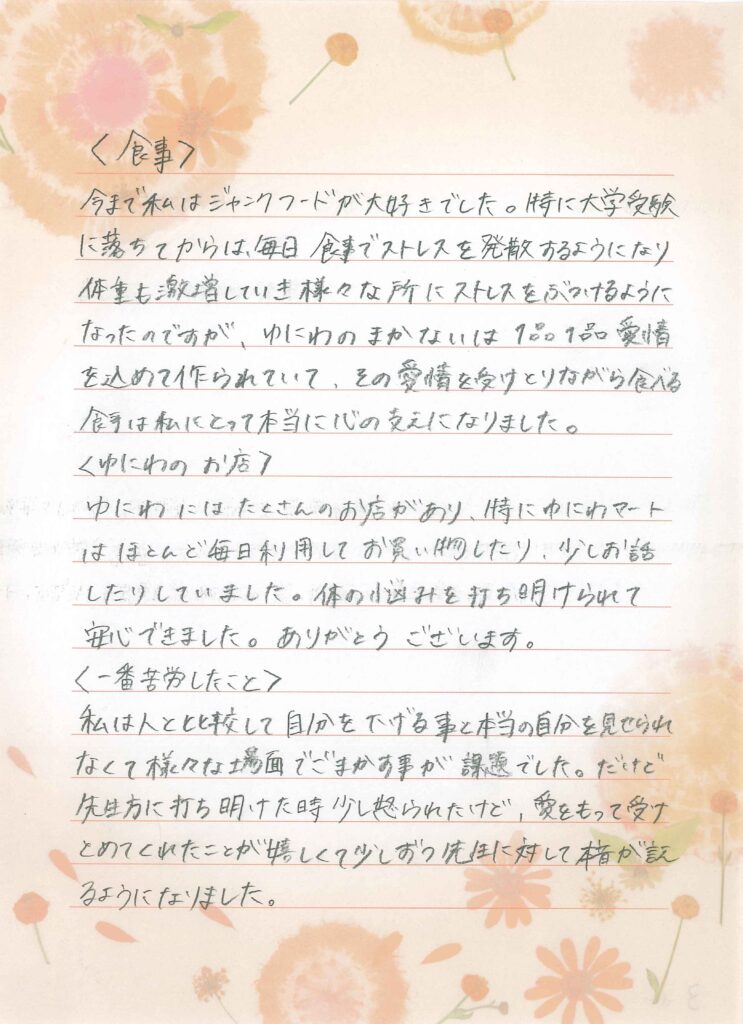 〈食事〉
今まで私はジャンクフードが大好きでした。特に大学受験
に落ちてからは、毎日食事でストレスを発散するようになり
体重も激増していき様々な所にストレスをぶつけるように
なったのですが、ゆにわのまかないは1品1品愛情
を込めて作られていて、その愛情を受けとりながら食べる
食事は私にとって本当に心の支えになりました。
〈ゆにわのお店〉
ゆにわにはたくさんのお店があり、特にゆにわマート
はほとんど毎日利用してお買い物したり、少しお話
したりしていました。体の悩みを打ち明けられて
安心できました。ありがとうございます。
〈一番苦労したこと〉
私は人と比較して自分を下げる事と本当の自分を見せられ
なくて様々な場面でごまかす事が課題でした。だけど
先生方に打ち明けた時少し怒られたけど、愛をもって受け
とめてくれたことが嬉しくて少しずつ先生に対して本音が言え
るようになりました。